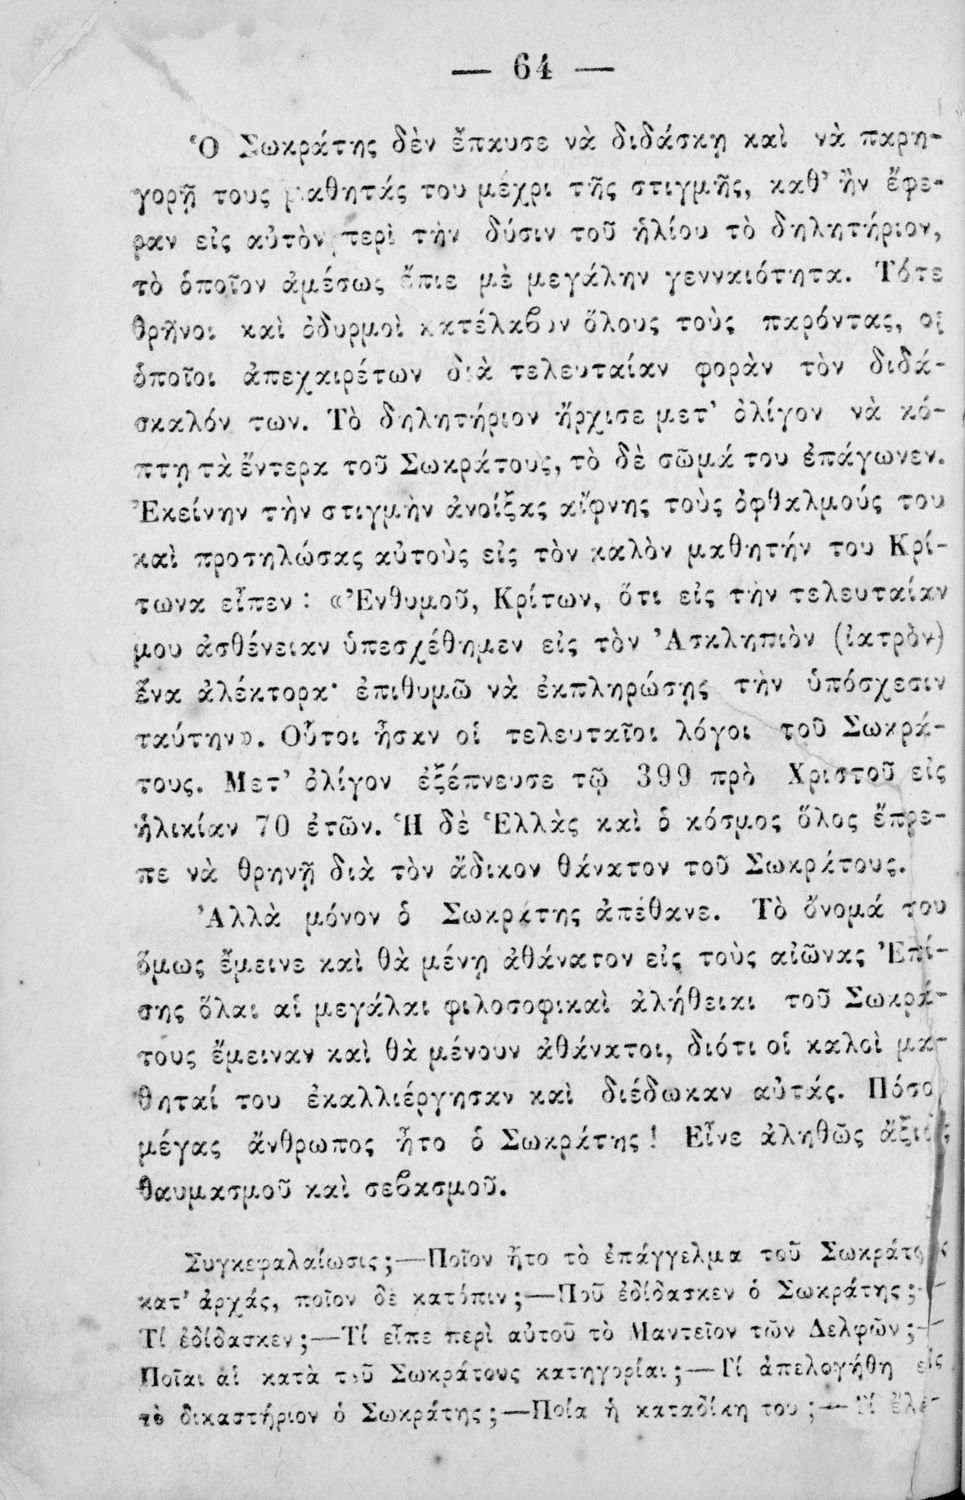 — 64 —
Ὁ Σωκράτης δὲν ἔπαυσε νὰ διδάσκῃ καὶ νὰ παρη-
γορῇ τους μαθητάς του μέχρι τῆς στιγμῆς, καθ’ ἣν ἔφε-
ραν εἰς αὐτὸν περὶ τὴν δύσιν τοῦ ἡλίου τὸ δηλητήριον,
τὸ ὁποῖον ἀμέσως ἔπιε μὲ μεγάλην γενναιότητα. Τότε
θρῆνοι καὶ ὀδυρμοὶ κατέλαβον ὅλους τοὺς παρόντας, οἱ
ὁποῖοι ἀπεχαιρέτων διὰ τελευταίαν φορὰν τὸν διδά-
σκαλόν των. Τὸ δηλητήριον ἤρχισε μετ’ ὀλίγον νὰ κό-
πτῃ τὰ ἔντερα τοῦ Σωκράτους, τὸ δὲ σῶμά του ἐπάγωνεν.
Ἐκείνην τὴν στιγμὴν ἀνοίξας αἴφνης τοὺς ὀφθαλμούς του
καὶ προσηλώσας αὐτοὺς εἰς τὸν καλὸν μαθητήν του Κρί-
τωνα εἶπεν : «Ἐνθυμοῦ, Κρίτων, ὅτι εἰς τὴν τελευταίαν
μου ἀσθένειαν ὑπεσχέθημεν εἰς τὸν Ἀσκληπιὸν (ἰατρὸν)
ἕνα ἀλέκτορα· ἐπιθυμῶ νὰ ἐκπληρώσῃς τὴν ὑπόσχεσιν
ταύτην». Οὗτοι ἦσαν οἱ τελευταῖοι λόγοι τοῦ Σωκρά-
τους. Μετ’ ὀλίγον ἐξέπνευσε τῷ 399 πρὸ Χριστοῦ εἰς
ἡλικίαν 70 ἐτῶν. Ἡ δὲ Ἑλλὰς καὶ ὁ κόσμος ὅλος ἔπρε-
πε νὰ θρηνῇ διὰ τὸν ἄδικον θάνατον τοῦ Σωκράτους.
Ἀλλὰ μόνον ὁ Σωκράτης ἀπέθανε. Τὸ ὄνομά του
ὅμως ἔμεινε καὶ θὰ μένῃ ἀθάνατον εἰς τοὺς αἰῶνας Ἐπί-
σης ὅλαι αἱ μεγάλαι φιλοσοφικαὶ ἀλήθειαι τοῦ Σωκρά-
τους ἔμειναν καὶ θὰ μένουν ἀθάνατοι, διότι οἱ καλοὶ μα-
θηταί του ἐκαλλιέργησαν καὶ διέδωκαν αὐτάς. Πόσο
μέγας ἄνθρωπος ἦτο ὁ Σωκράτης ! Εἶνε ἀληθῶς ἄξιος
θαυμασμοῦ καὶ σεβασμοῦ.
Συγκεφαλαίωσις ;—Ποῖον ἦτο τὸ ἐπάγγελμα τοῦ Σωκράτους
κατ’ ἀρχάς, ποῖον δὲ κατόπιν ;—Ποῦ ἐδίδασκεν ὁ Σωκράτης ;—
Τί ἐδίδασκεν ;—Τί εἶπε περὶ αὐτοῦ τὸ Μαντεῖον τῶν Δελφῶν ;—
Ποῖαι αἱ κατὰ τοῦ Σωκράτους κατηγορίαι ;—Τί ἀπελογήθη εἰς
τὸ δικαστήριον ὁ Σωκράτης ;—Ποία ἡ καταδίκη του ;—Τί ἔλε-